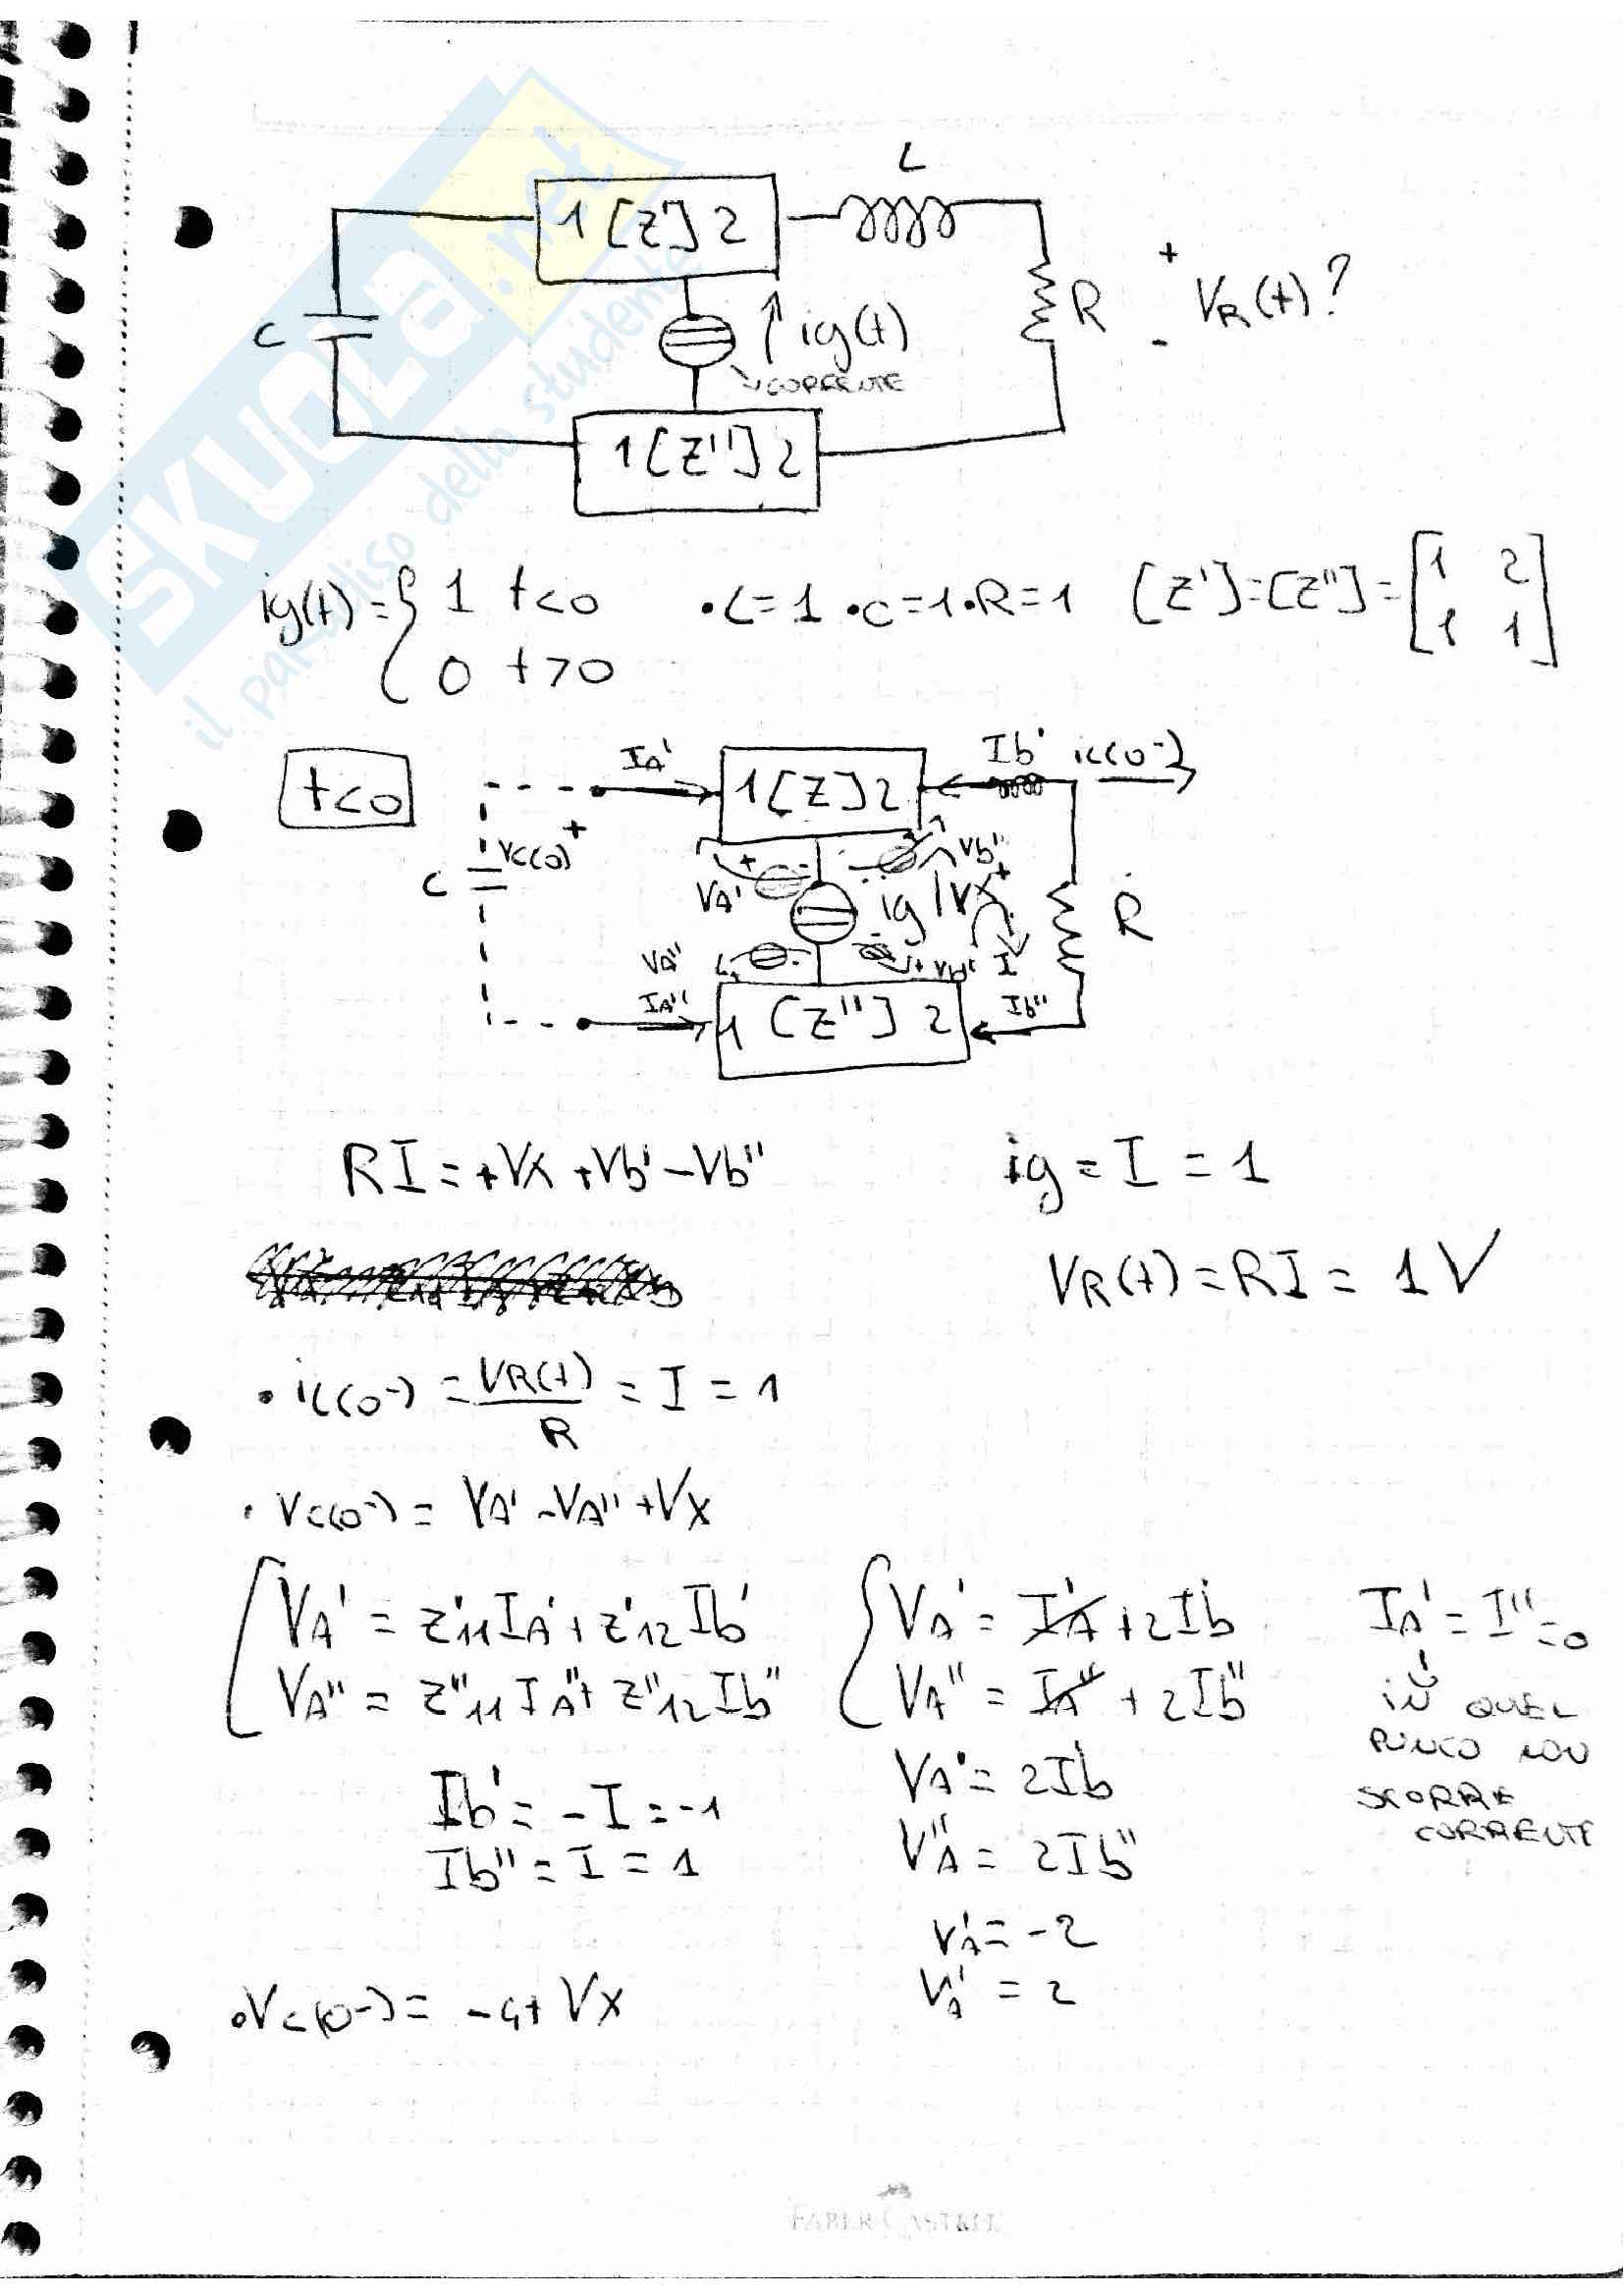 L
1 [Z'] 2
+
R
VR(t)?
-
C
ig(t)
CORRENTE
1 [Z''] 2
SKUOLA.net
il paradiso dello studente
ig(t) = { 1 t<0
0 t>0
•L=1 •C=1 •R=1 [Z'] = [Z''] = [ 1 2
1 1 ]
t<0
IA'
1 [Z] 2
Ib'
iL(0-)
C
VC(0)
+
VA'
+
Vb''
ig
Vx
+
R
VA''
+ Vb''
I
IA''
1 [Z''] 2
Ib''
RI = +Vx +Vb' -Vb''
ig = I = 1
VR(t) = RI = 1 V
• iL(0-) = VR(t)/R = I = 1
• Vc(0-) = VA' - VA'' + Vx
VA' = Z'11 IA' + Z'12 Ib'
VA'' = Z''11 IA'' + Z''12 Ib''
VA' = IA' + 2Ib'
VA'' = IA'' + 2Ib''
IA' = I'' = 0
IN QUEL
PUNCO NON
SCORRE
CORRENTE
Ib' = - I = -1
Ib'' = I = 1
VA' = 2Ib'
VA'' = 2Ib''
VA' = -2
VA' = 2
• Vc(0-) = -4+ Vx
FABER CASTELL